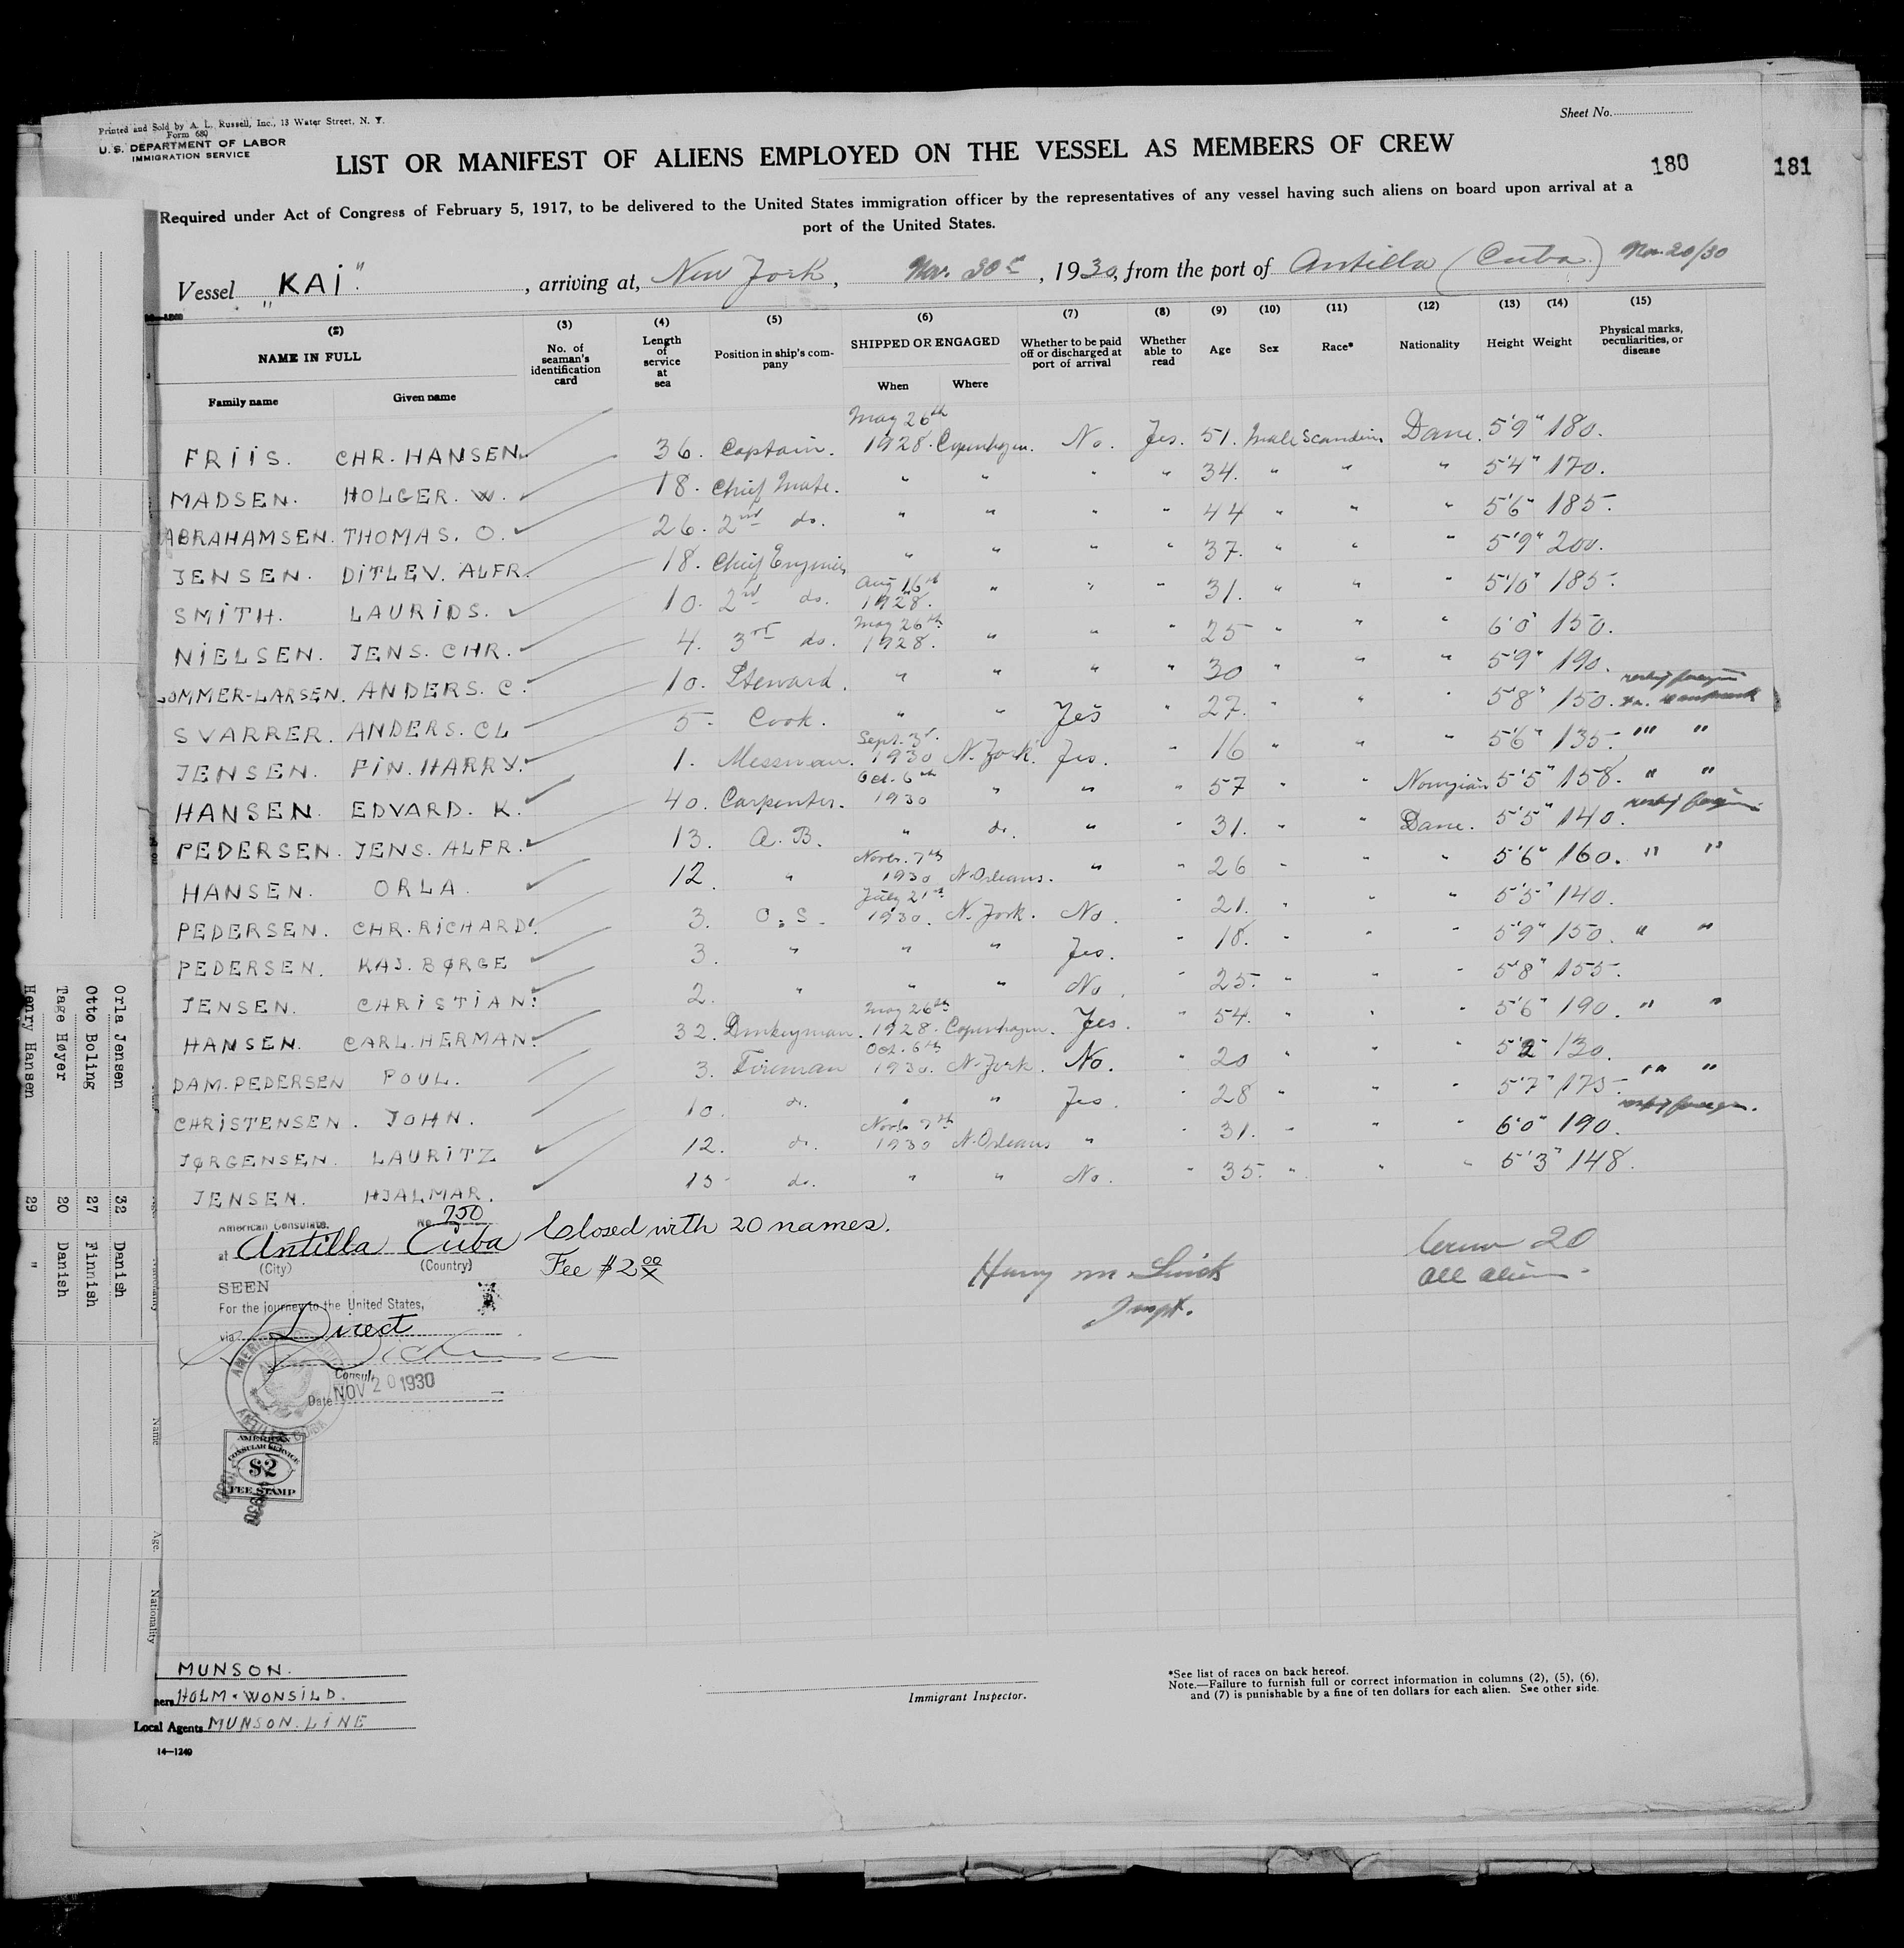 Printed and Sold by A. L. Russell, Inc., 13 Water Street, N. Y.
Form 680
U. S. DEPARTMENT OF LABOR
IMMIGRATION SERVICE
Sheet No.
LIST OR MANIFEST OF ALIENS EMPLOYED ON THE VESSEL AS MEMBERS OF CREW
180
181
Required under Act of Congress of February 5, 1917, to be delivered to the United States immigration officer by the representatives of any vessel having such aliens on board upon arrival at a
port of the United States.
Vessel „KAI", arriving at, New York, Nov. 30th, 1930, from the port of Antilla (Cuba) Nov 20/30
(2) (3) (4) (5) (6) (7) (8) (9) (10) (11) (12) (13) (14) (15)
NAME IN FULL No. of seaman's identification card Length of service at sea Position in ship's company SHIPPED OR ENGAGED Whether to be paid off or discharged at port of arrival Whether able to read Age Sex Race* Nationality Height Weight Physical marks, peculiarities, or disease
Family name Given name When Where
FRIIS. CHR. HANSEN. 36. Captain. May 26th 1928. Copenhagen. No. Yes. 51. Male Scandin. Dane. 5'9" 180.
MADSEN. HOLGER. W. 18. Chief Mate. " " " " 34. " " " 5'4" 170.
ABRAHAMSEN. THOMAS. O. 26. 2nd do. " " " " 44 " " " 5'6" 185.
JENSEN. DITLEV. ALFR. 18. Chief Engineer " " " " 37. " " " 5'9" 200.
SMITH. LAURIDS. 10. 2nd do. Aug 16th 1928. " " " 31. " " " 5'10" 185.
NIELSEN. JENS. CHR. 4. 3rd do. May 26th 1928. " " " 25 " " " 6'0" 150.
SOMMER-LARSEN. ANDERS. C. 10. Steward. " " " " 30 " " " 5'9" 190.
SVARRER. ANDERS. CL 5. Cook. " " Yes " 27. " " " 5'8" 150.
JENSEN. FIN. HARRY. 1. Messman. Sept. 3rd 1930 N. York. Yes. " 16 " " " 5'6" 135. " "
HANSEN. EDVARD. K. 40. Carpenter. Oct. 6th 1930 " " " 57 " " Norvgian 5'5" 158. " "
PEDERSEN. JENS. ALFR. 13. A. B. " do. " " 31. " " Dane. 5'5" 140.
HANSEN. ORLA. 12. " Novb. 7th 1930 N. Orleans. " " 26 " " " 5'6" 160. " "
PEDERSEN. CHR. RICHARD. 3. O. S. July 21st 1930. N. York. No. " 21. " " " 5'5" 140.
PEDERSEN. KAJ. BØRGE 3. " " " Yes. " 18. " " " 5'9" 150. " "
JENSEN. CHRISTIAN. 2. " " " No. " 25. " " " 5'8" 155.
HANSEN. CARL. HERMAN. 32. Donkeyman. May 26th 1928. Copenhagen. Yes. " 54. " " " 5'6" 190. " "
DAM. PEDERSEN POUL. 3. Fireman Oct. 6th 1930. N. York. No. " 20 " " " 5'2" 130.
CHRISTENSEN. JOHN. 10. do. " " Yes. " 28 " " " 5'7" 175. " "
JØRGENSEN. LAURITZ 12. do. Novb. 7th 1930 N. Orleans " " 31. " " " 6'0" 190.
JENSEN. HJALMAR. 15 do. " " No. " 35. " " " 5'3" 148.
American Consulate. No. 750
at Antilla Cuba Closed with 20 names.
(City) (Country) Fee $2 00/x
SEEN
For the journey to the United States,
via Direct
Consul.
Date NOV 20 1930
AMERICAN
CONSULAR SERVICE
$2
FEE STAMP
Harry M. Linick
Inspt.
Crew 20
All alien.
MUNSON.
ners HOLM & WONSILD.
Local Agents MUNSON. LINE
14—1240
Immigrant Inspector.
*See list of races on back hereof.
Note.—Failure to furnish full or correct information in columns (2), (5), (6),
and (7) is punishable by a fine of ten dollars for each alien. See other side.
Name Age. Nationality
Orla Jensen 32 Danish
Otto Boling 27 Finnish
Tage Høyer 20 Danish
Henry Hansen 29 "